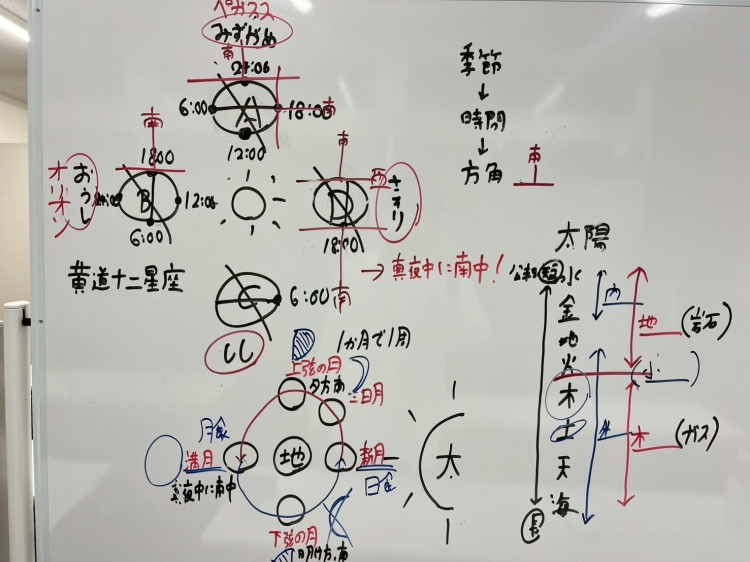 ペガスス
みずがめ
南
24:00
6:00
A
18:00
南
12:00
南
18:00
オリオン
おうし
B
12:00
6:00
南
D
さそり
18:00
南
黄道十二星座
→真夜中に南中!
C
6:00
しし
季節
↓
時間
↓
方角
南
太陽
公転
短
水
金
地
火
木
土
天
海
長
内
外
地
(岩石)
(小)
木
(ガス)
1か月で1周
上弦の月
夕方南
三日月
月食
満月
真夜中に南中
地
新月
日食
太
下弦の月
明け方、南